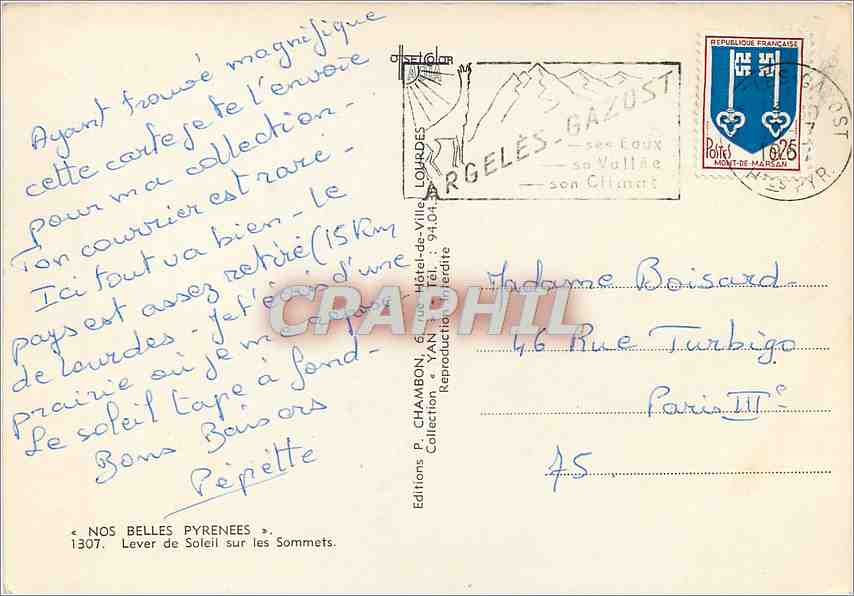 Ayant trouvé magnifique
cette carte je te l'envoie
pour ma collection -
Ton courrier est rare -
Ici tout va bien - Le
pays est assez retiré (15 Km
de Lourdes - Je t'écris d'une
prairie où je me
Le soleil tape à fond -
Bons Baisers
Pépiétte
« NOS BELLES PYRENEES ».
1307. Lever de Soleil sur les Sommets.
OFFSETCOLOR
Editions P. CHAMBON, 6, rue Hôtel-de-Ville, LOURDES
Collection « YAN » Tél. : 94.04.
Reproduction interdite
ARGELÈS-GAZOST
ses Eaux
sa Vallée
son Climat
REPUBLIQUE FRANÇAISE
POSTES
0,25
MONT-DE-MARSAN
GAZOST
PYR.
CPARPHIL
Madame Boisard
46 Rue Turbigo
Paris IIIe
75